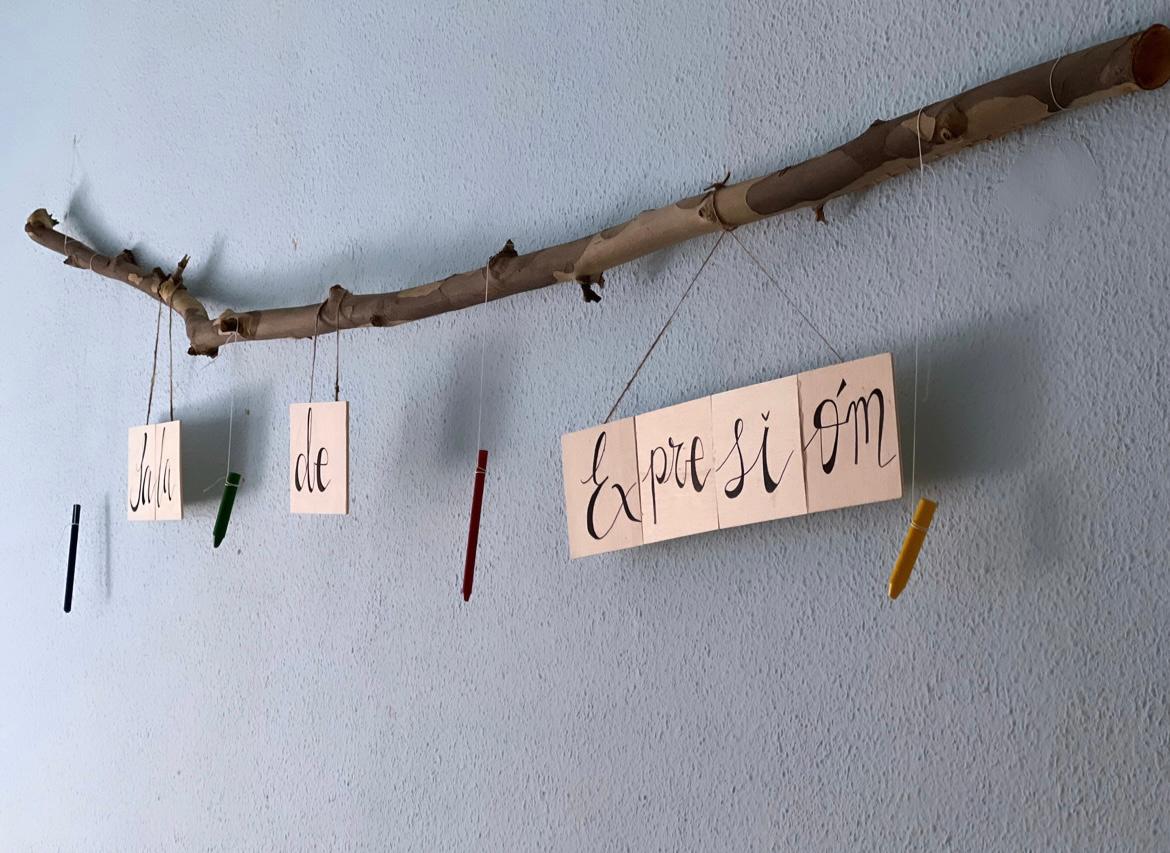 Sala de Expresión